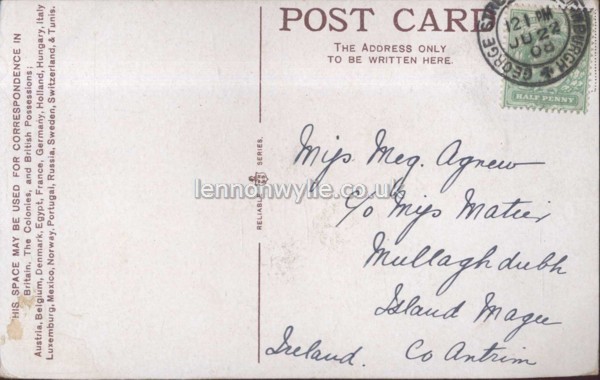 POST CARD
THE ADDRESS ONLY
TO BE WRITTEN HERE.
HIS SPACE MAY BE USED FOR CORRESPONDENCE IN
Britain, The Colonies, and British Possessions;
Austria, Belgium, Denmark, Egypt, France, Germany, Holland, Hungary, Italy
Luxemburg, Mexico, Norway, Portugal, Russia, Sweden, Switzerland, & Tunis.
RELIABLE SERIES.
GEORGE
12 PM
JU 22
08
HALF PENNY
lennonwylie.co.uk
Miss Meg. Agnew
c/o Miss Matier
Mullaghdubh
Island Magee
Co Antrim
Ireland.